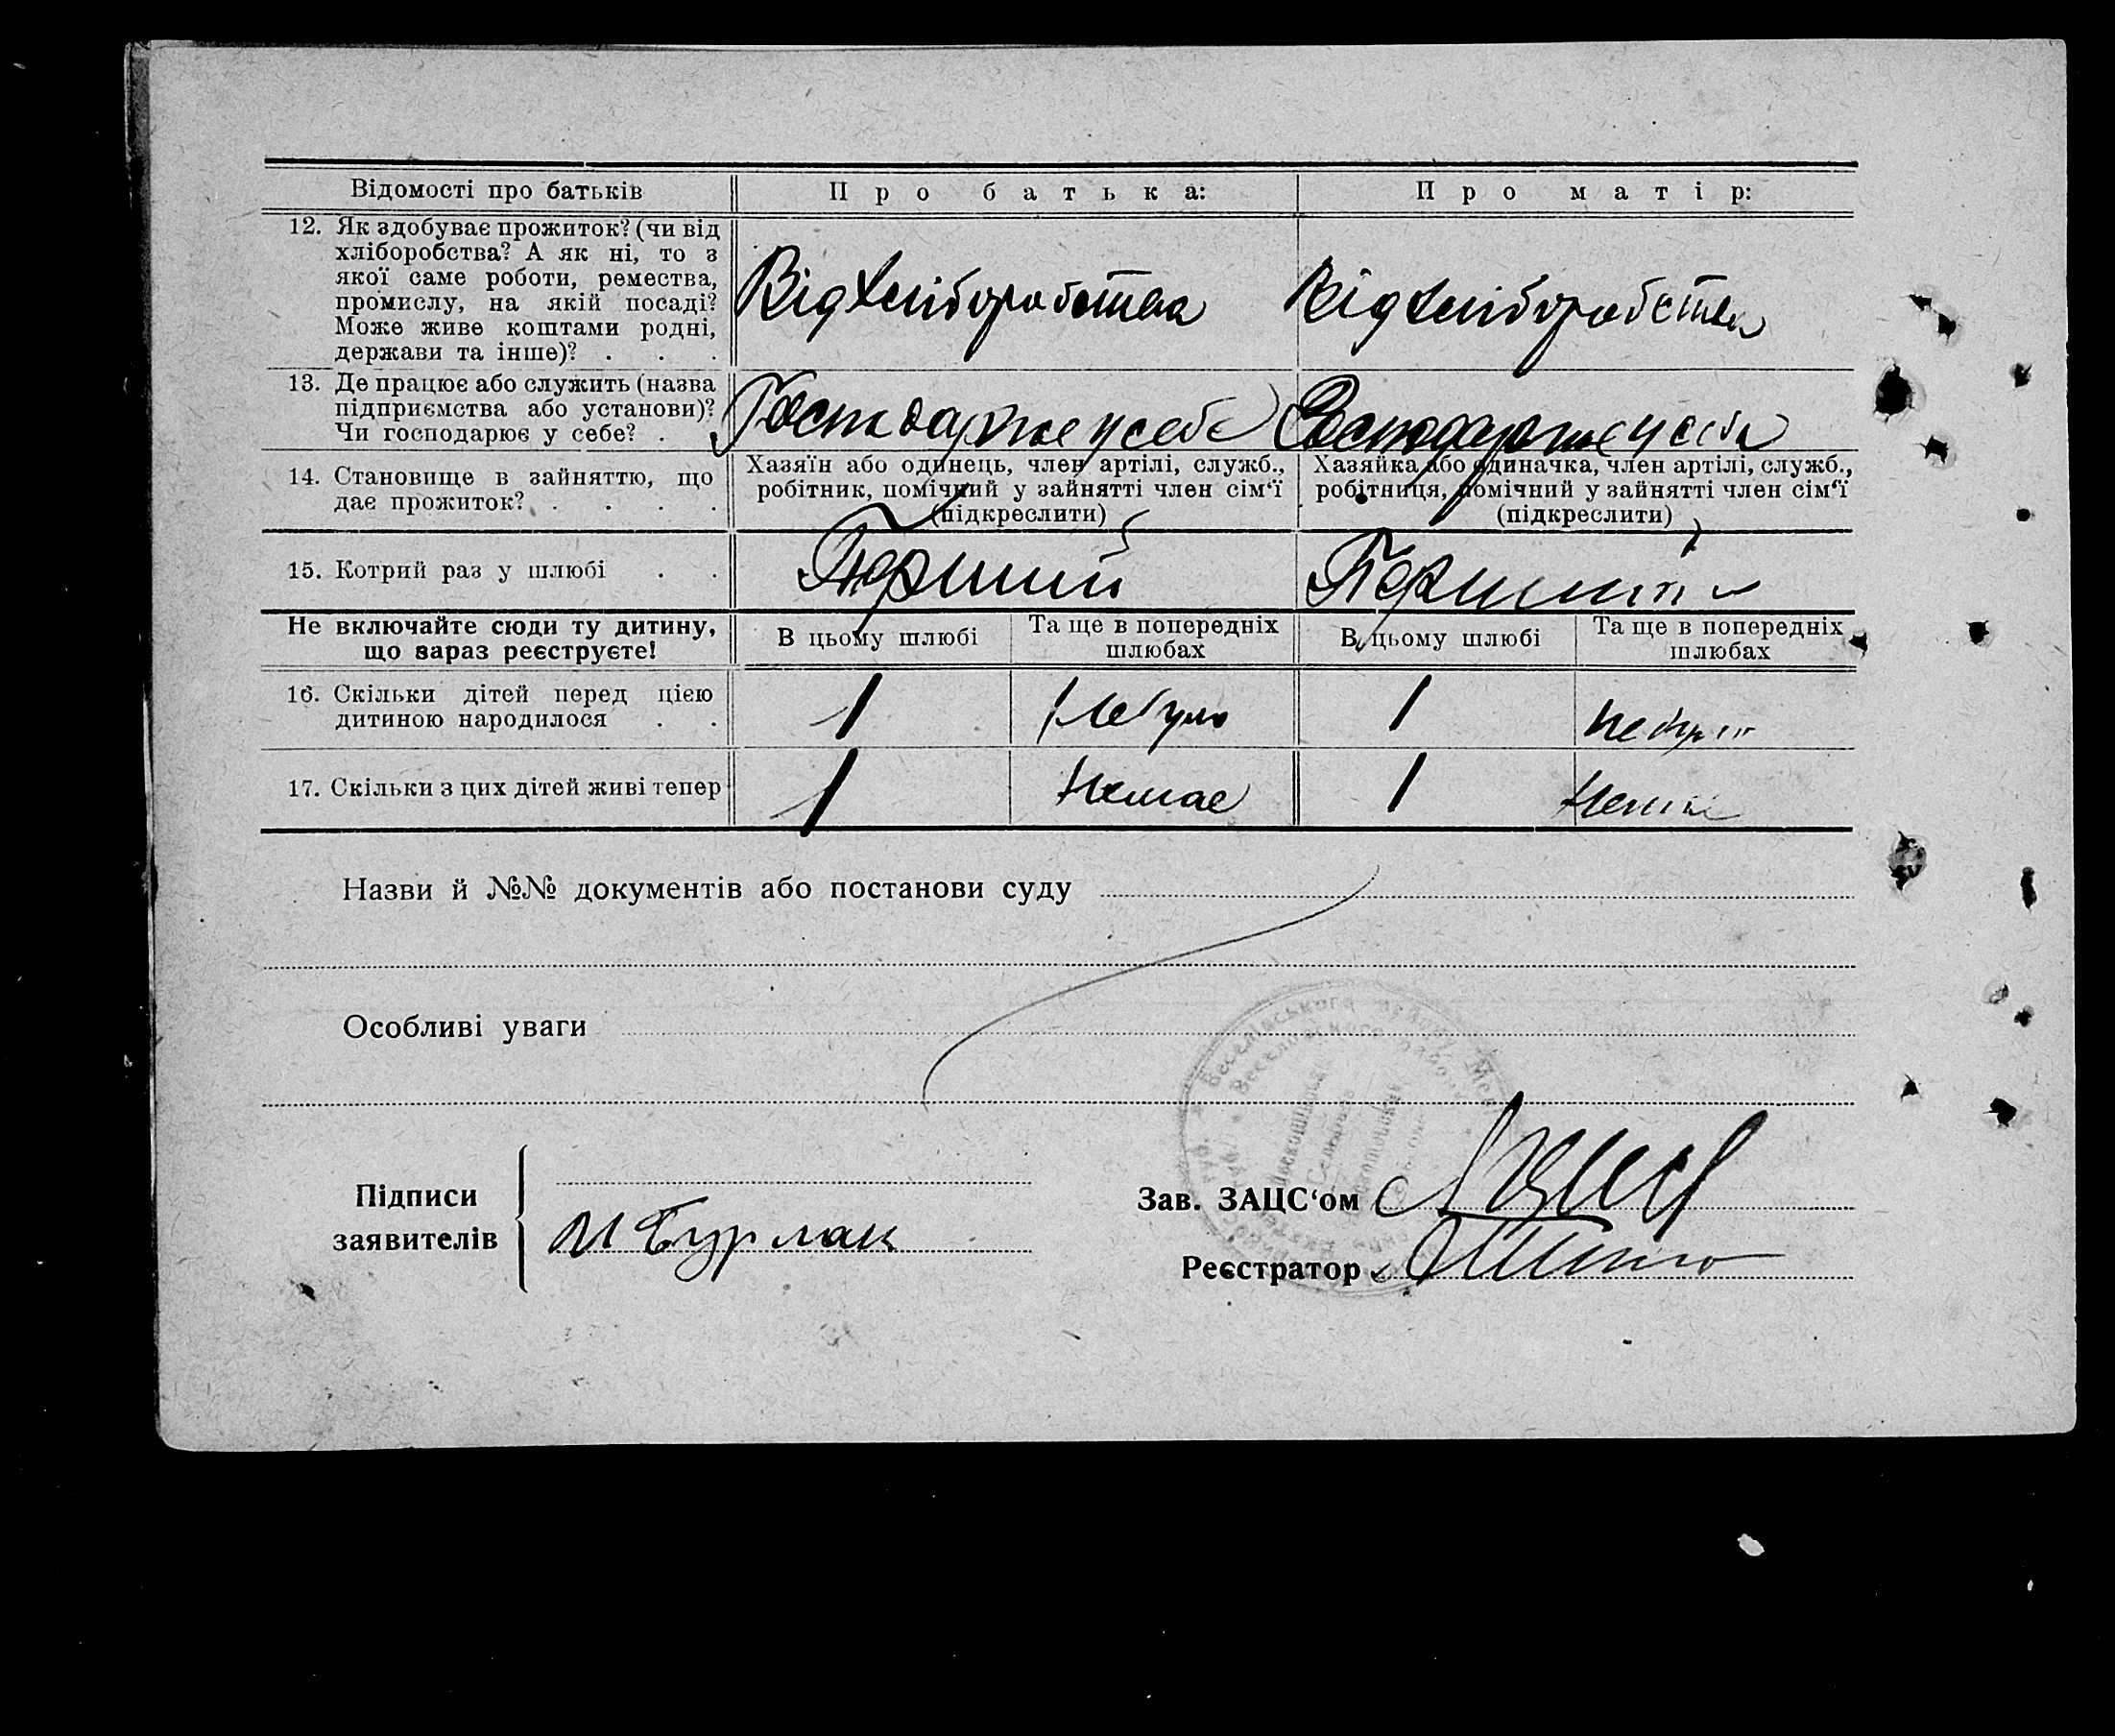 Відомості про батьків
Про батька:
Про матір:
12. Як здобуває прожиток? (чи від
хліборобства? А як ні, то з
якої саме роботи, ремества,
промислу, на якій посаді?
Може живе коштами родні,
держави та інше)? . . .
Від хліборобства
Від хліборобства
13. Де працює або служить (назва
підприємства або установи)?
Чи господарює у себе? .
Господарює у себе
Господарює у себе
14. Становище в зайняттю, що
дає прожиток? . . . .
Хазяїн або одинець, член артілі, служб.,
робітник, помічний у зайнятті член сім‘ї
(підкреслити)
Хазяйка або одиначка, член артілі, служб.,
робітниця, помічний у зайнятті член сім‘ї
(підкреслити)
15. Котрий раз у шлюбі . .
Перший
Перший
Не включайте сюди ту дитину,
що зараз реєструєте!
В цьому шлюбі
Та ще в попередніх
шлюбах
В цьому шлюбі
Та ще в попередніх
шлюбах
16. Скільки дітей перед цією
дитиною народилося . .
1
Небуло
1
Небуло
17. Скільки з цих дітей живі тепер
1
Немає
1
Немає
Назви й №№ документів або постанови суду
Особливі уваги
Веселівського
Підписи
заявителів
И Бурлак
Зав. ЗАЦС‘ом
Реєстратор